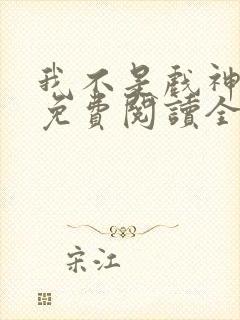 我不是戲神
免費閱讀全
宋江